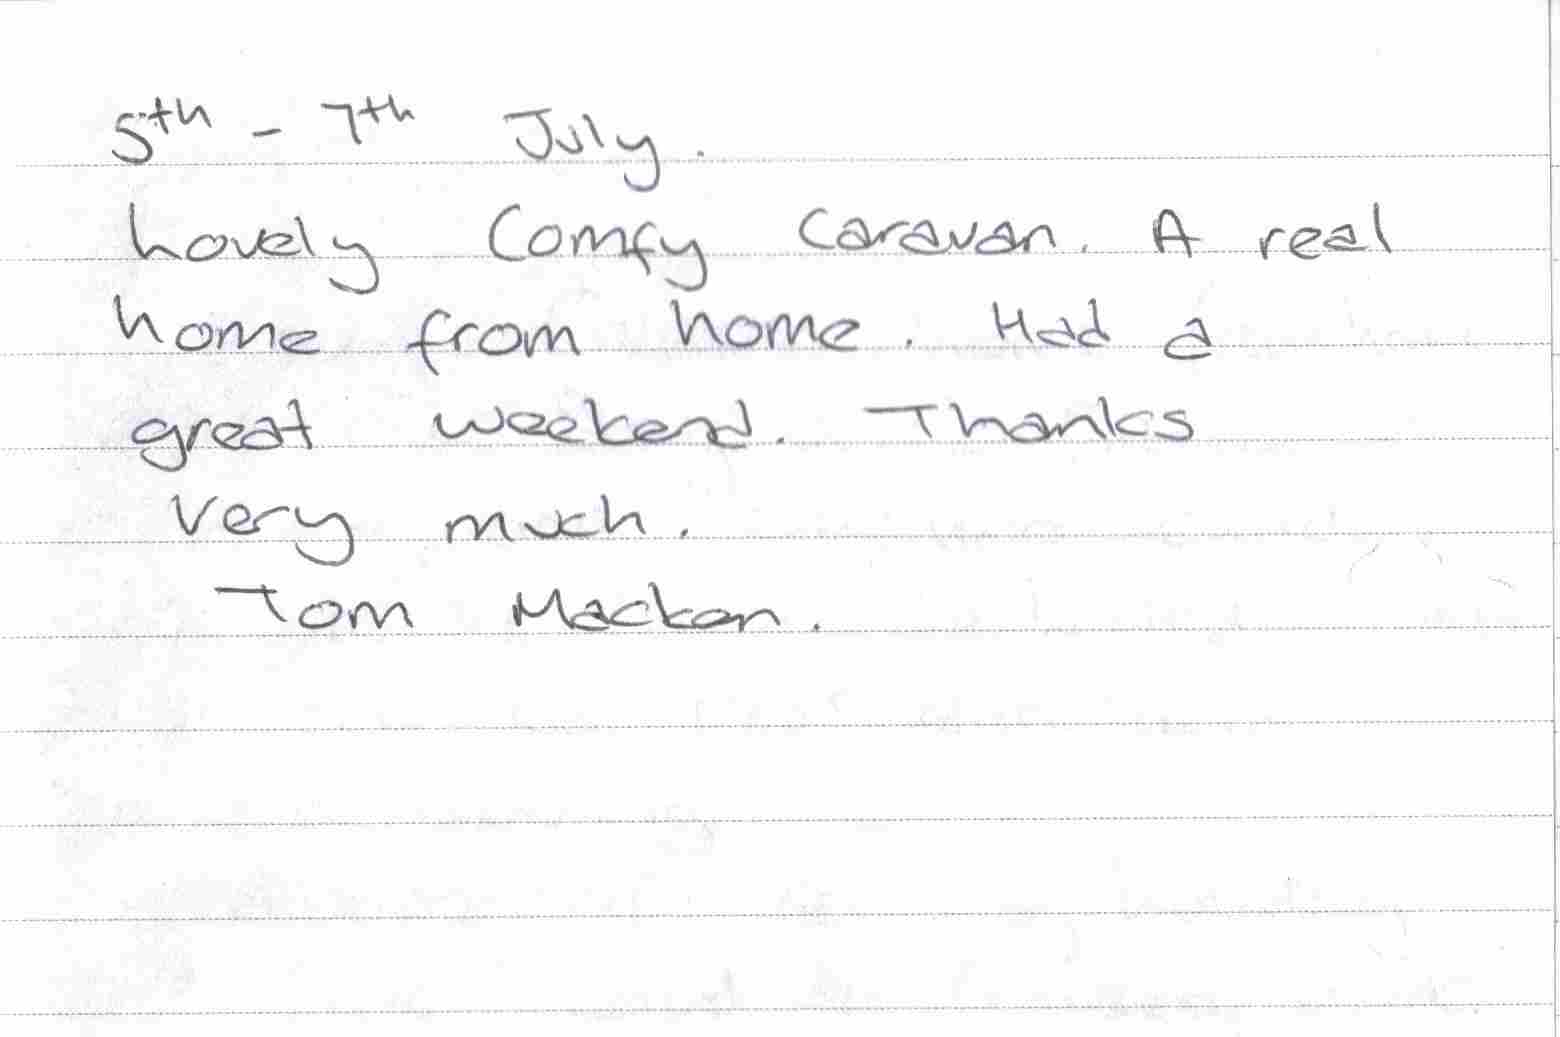 5th - 7th July.
Lovely Comfy Caravan. A real
home from home. Had a
great weekend. Thanks
Very much.
Tom Mackan.